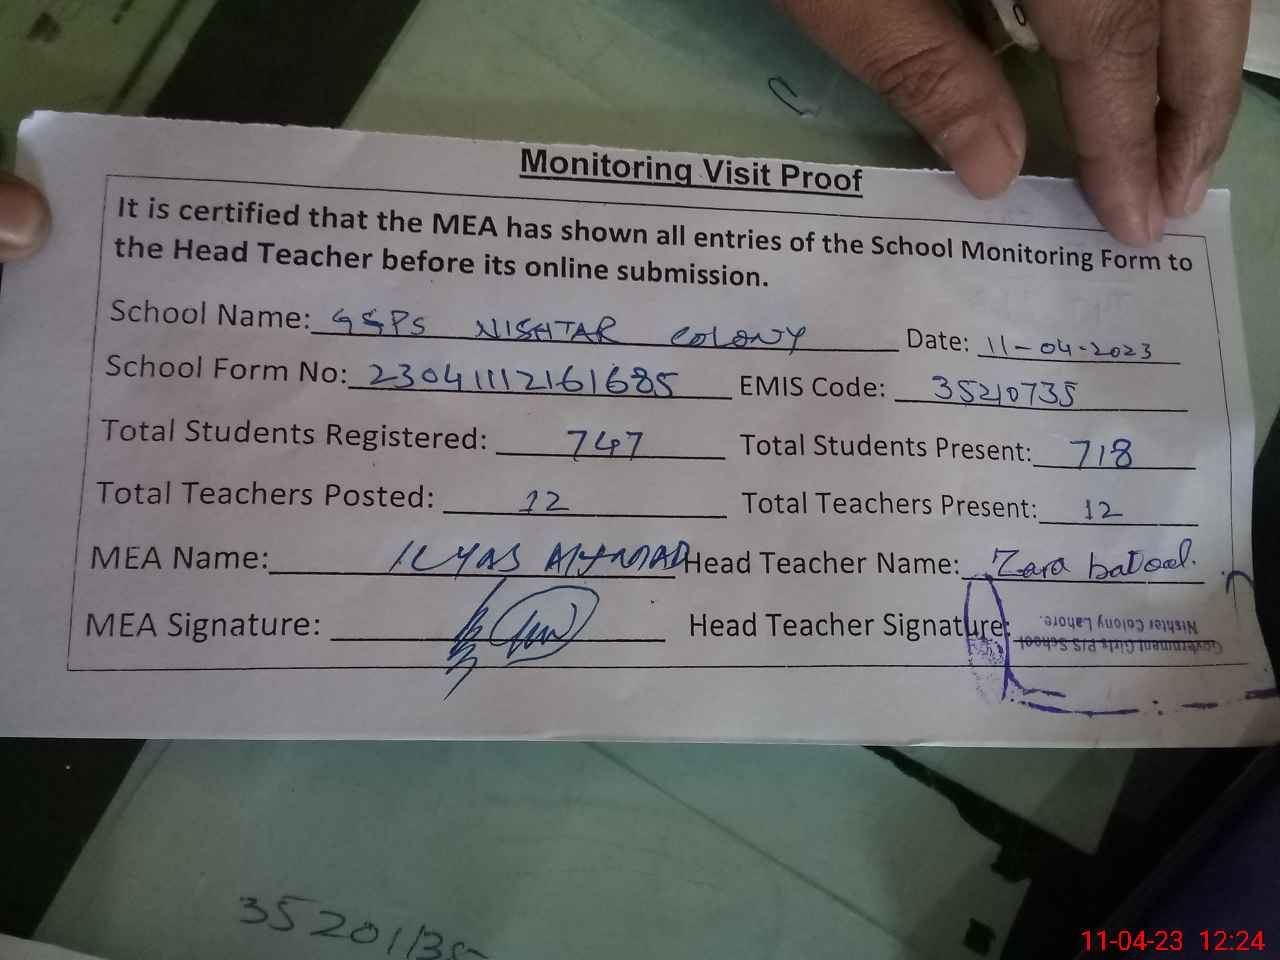 Monitoring Visit Proof
It is certified that the MEA has shown all entries of the School Monitoring Form to
the Head Teacher before its online submission.
School Name: GGPS NISHTAR COLONY Date: 11-04-2023
School Form No: 23041112161685 EMIS Code: 35210735
Total Students Registered: 747 Total Students Present: 718
Total Teachers Posted: 12 Total Teachers Present: 12
MEA Name: ILYAS AHMAD Head Teacher Name: Zara batool.
MEA Signature: Head Teacher Signature:
Nishter Colony Lahore.
Government Girls P/S School
35201135
11-04-23 12:24